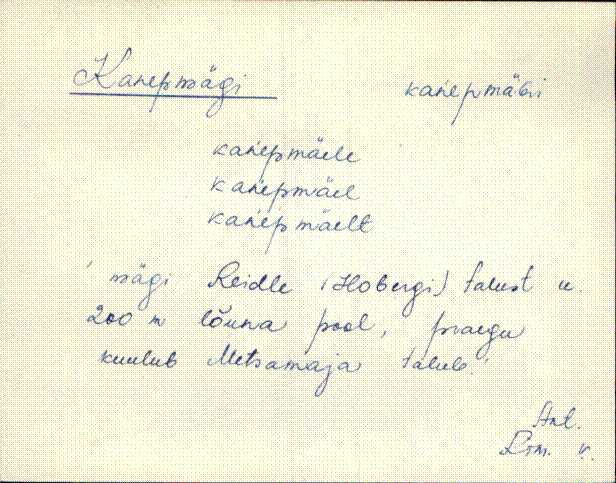 Kanepmägi kańepmäɢi
kańepmäele
kańepmäel
kańepmäelt
' mägi Reidle (Hobergi) talust u.
200 m lõuna pool, praegu
kuulub Metsamaja talule.'
Ant.
Lom. k.